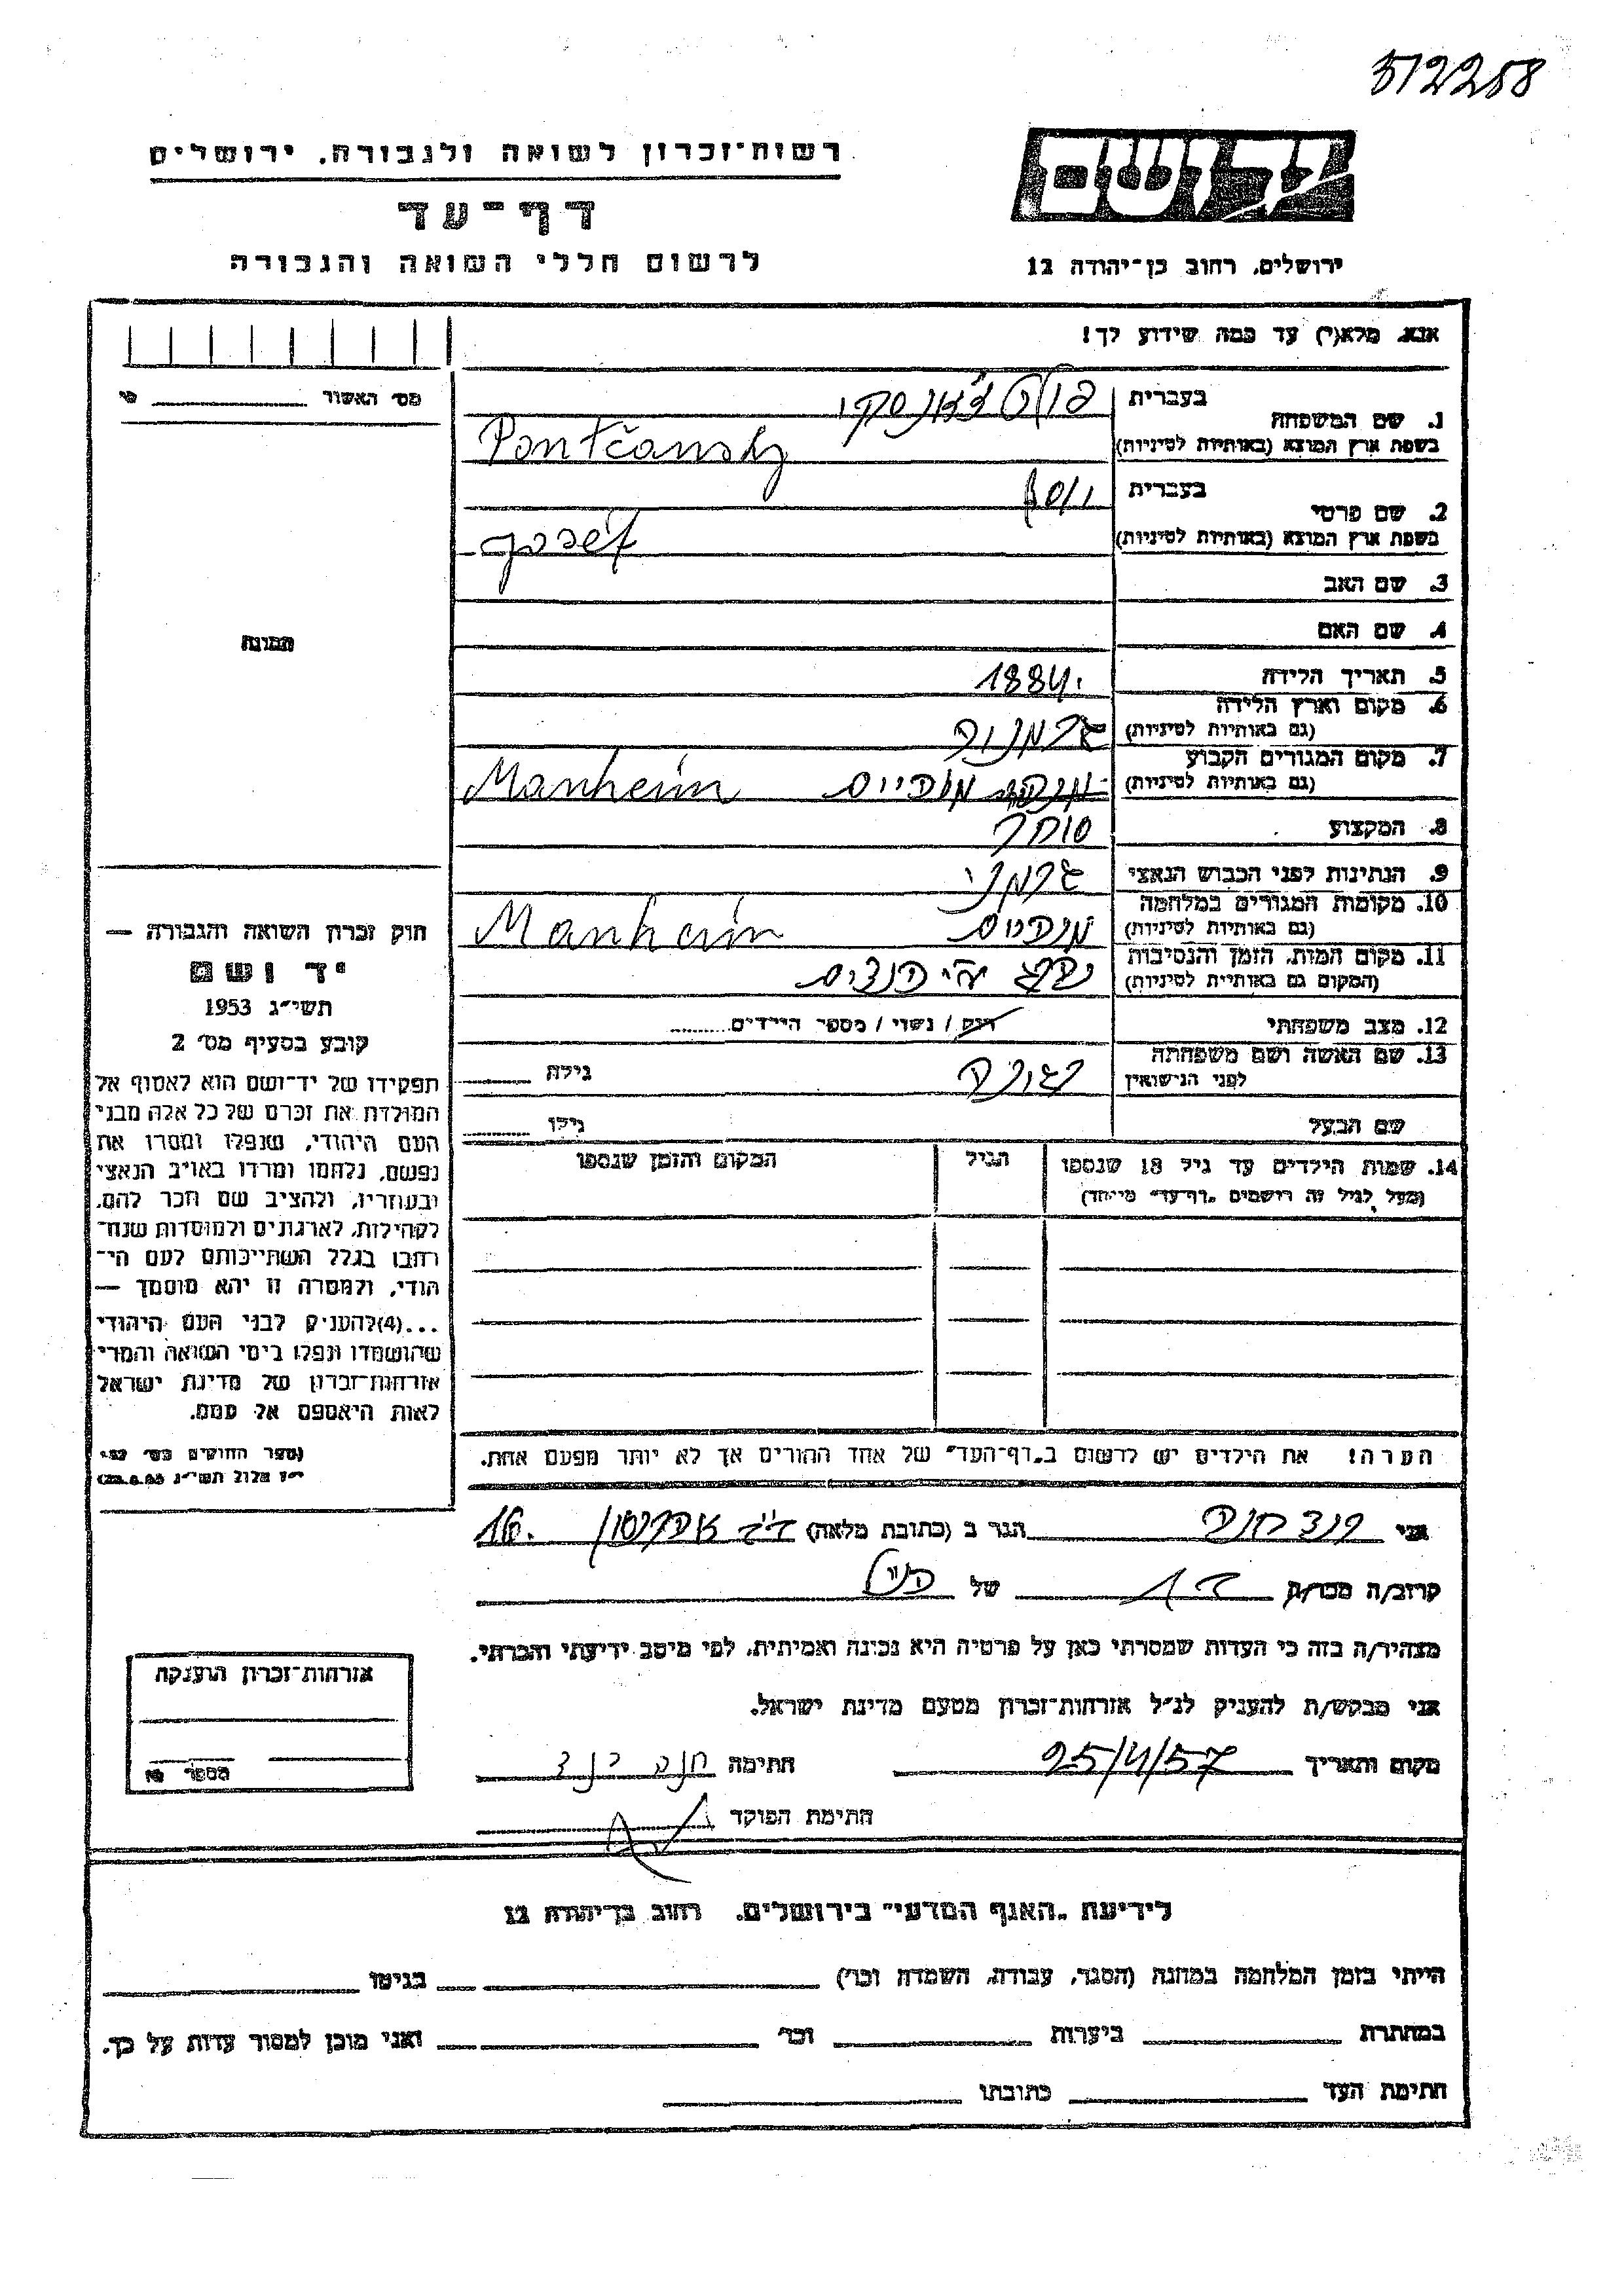 512258
יד ושם
רשות־זכרון לשואה ולגבורה, ירושלים
דף־עד
לרשום חללי השואה והגבורה
ירושלים, רחוב בן־יהודה 12
אנא, מלא(י) עד כמה שידוע לך!
מס׳ האשור
1. שם המשפחה
בעברית
בשפת ארץ המוצא (באותיות לטיניות) Pontčansky
2. שם פרטי
בעברית יוסף
בשפת ארץ המוצא (באותיות לטיניות) Josef
3. שם האב
4. שם האם
5. תאריך הלידה 1884.
6. מקום וארץ הלידה
(גם באותיות לטיניות) גרמניה
7. מקום המגורים הקבוע
(גם באותיות לטיניות) מנהיים Manheim
8. המקצוע סוחר
9. הנתינות לפני הכבוש הנאצי גרמני
10. מקומות המגורים במלחמה
(גם באותיות לטיניות) מנהים Manheim
11. מקום המות, הזמן והנסיבות
(המקום גם באותיות לטיניות) נהרג ע״י הנצים
12. מצב משפחתי רווק / נשוי / מספר הילדים
13. שם האשה ושם משפחתה
לפני הנישואין גילה
שם הבעל גילו
14. שמות הילדים עד גיל 18 שנספו
(מעל לגיל זה רושמים „דף־עד״ מיוחד)
הגיל
המקום והזמן שנספו
הערה! את הילדים יש לרשום ב„דף־העד״ של אחד ההורים אך לא יותר מפעם אחת.
תמונה
חוק זכרון השואה והגבורה —
יד ושם
תשי״ג 1953
קובע בסעיף מס׳ 2
תפקידו של יד־ושם הוא לאסוף אל
המולדת את זכרם של כל אלה מבני
העם היהודי, שנפלו ומסרו את
נפשם, נלחמו ומרדו באויב הנאצי
ובעוזריו, ולהציב שם וזכר להם,
לקהילות, לארגונים ולמוסדות שנח־
רבו בגלל השתייכותם לעם הי־
הודי, ולמטרה זו יהא מוסמך —
...(4)להעניק לבני העם היהודי
שהושמדו ונפלו בימי השואה והמרי
אזרחות־זכרון של מדינת ישראל
לאות היאספם אל עמם.
(ספר החוקים מס׳ 132,
י״ז אלול תשי״ג 28.8.53)
אני הגר ב (כתובת מלאה) 16.
קרוב/ה מכר/ת של הנ״ל
מצהיר/ה בזה כי העדות שמסרתי כאן על פרטיה היא נכונה ואמיתית, לפי מיטב ידיעתי והכרתי.
אני מבקש/ת להעניק לנ״ל אזרחות־זכרון מטעם מדינת ישראל.
מקום ותאריך 25/4/57 חתימה
חתימת הפוקד
אזרחות־זכרון הוענקה
לידיעת „האגף המדעי״ בירושלים, רחוב בן־יהודה 12
הייתי בזמן המלחמה במחנה (הסגר, עבודה, השמדה וכו׳) בגיטו
במחתרת ביערות וכו׳ ואני מוכן למסור עדות על כך.
חתימת העד כתובתו